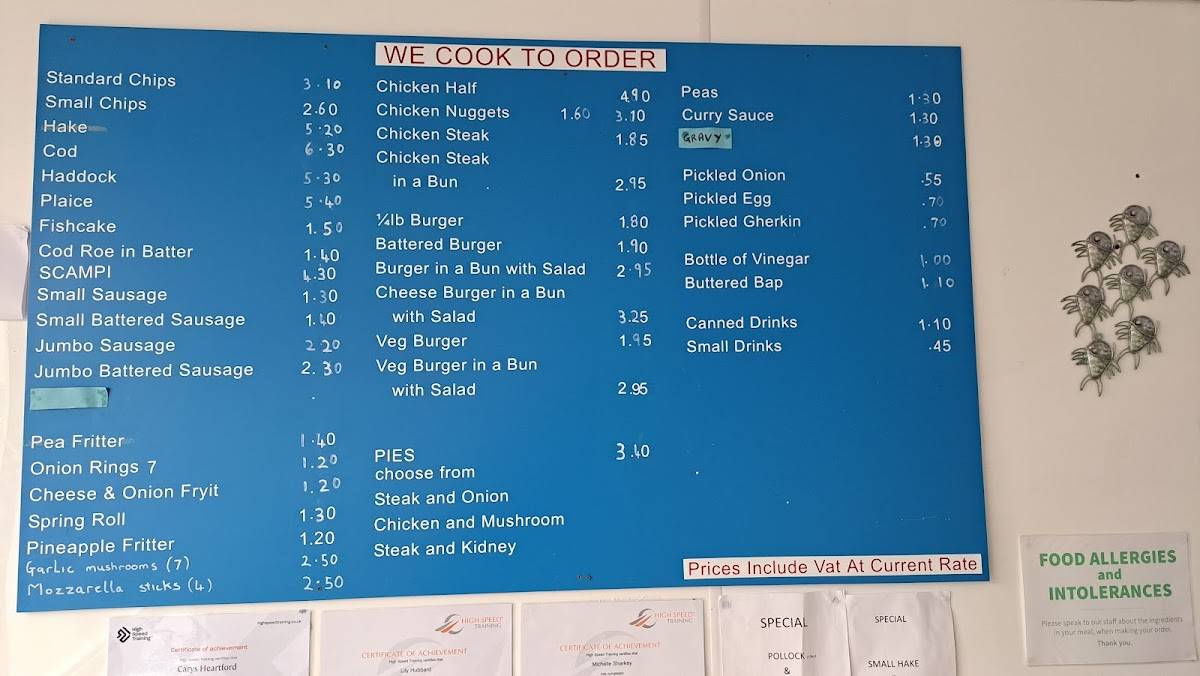 WE COOK TO ORDER
Standard Chips 3.10
Small Chips 2.60
Hake 5.20
Cod 6.30
Haddock 5.30
Plaice 5.40
Fishcake 1.50
Cod Roe in Batter 1.40
SCAMPI 4.30
Small Sausage 1.30
Small Battered Sausage 1.40
Jumbo Sausage 2.20
Jumbo Battered Sausage 2.30
Pea Fritter 1.40
Onion Rings 7 1.20
Cheese & Onion Fryit 1.20
Spring Roll 1.30
Pineapple Fritter 1.20
Garlic mushrooms (7) 2.50
Mozzarella sticks (4) 2.50
Chicken Half 4.90
Chicken Nuggets 1.60 3.10
Chicken Steak 1.85
Chicken Steak
in a Bun 2.95
¼lb Burger 1.80
Battered Burger 1.90
Burger in a Bun with Salad 2.95
Cheese Burger in a Bun
with Salad 3.25
Veg Burger 1.95
Veg Burger in a Bun
with Salad 2.95
PIES 3.40
choose from
Steak and Onion
Chicken and Mushroom
Steak and Kidney
Peas 1.30
Curry Sauce 1.30
GRAVY 1.30
Pickled Onion .55
Pickled Egg .70
Pickled Gherkin .70
Bottle of Vinegar 1.00
Buttered Bap 1.10
Canned Drinks 1.10
Small Drinks .45
Prices Include Vat At Current Rate
FOOD ALLERGIES
and
INTOLERANCES
Please speak to our staff about the ingredients
in your meal, when making your order.
Thank you.
High
Speed
Training
highspeedtraining.co.uk
Certificate of achievement
High Speed Training certifies that
Carys Heartford
HIGH SPEED
TRAINING
CERTIFICATE OF ACHIEVEMENT
High Speed Training certifies that
Lily Hubbard
HIGH SPEED
TRAINING
CERTIFICATE OF ACHIEVEMENT
High Speed Training certifies that
Michelle Sharkey
has completed
SPECIAL
POLLOCK
&
SPECIAL
SMALL HAKE